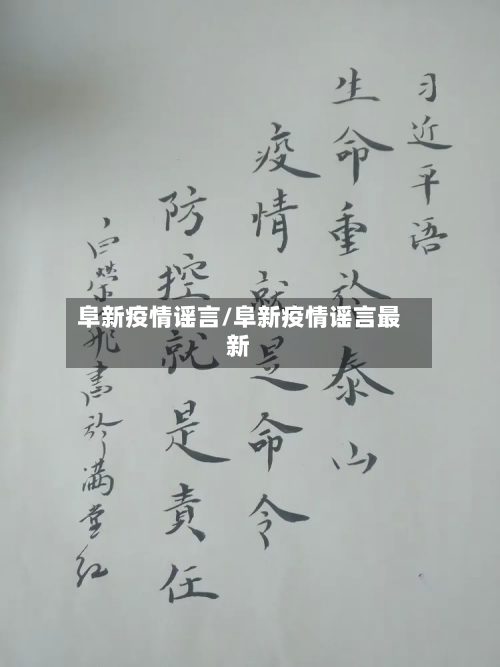 习近平语
生命重於泰山
疫情就是命令
防控就是責任
白榮飛書於满堂红
阜新疫情谣言/阜新疫情谣言最
新